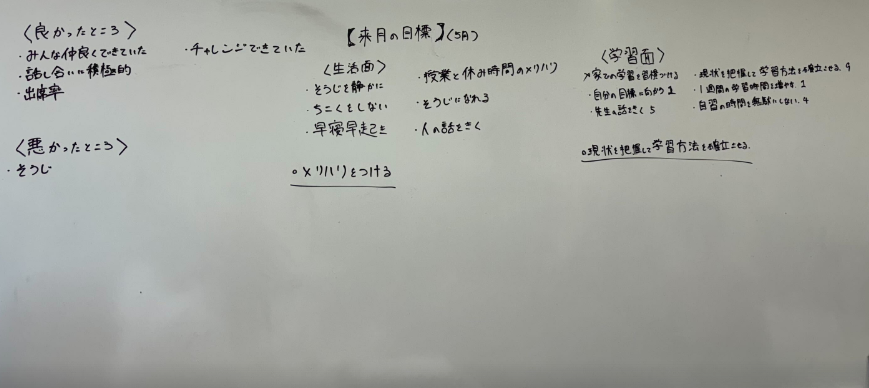 〈良かったところ〉
・みんな仲良くできていた
・話し合いに積極的
・出席率
・チャレンジできていた
〈悪かったところ〉
・そうじ
【来月の目標】(5月)
〈生活面〉
・そうじを静かに
・ちこくをしない
・早寝早起きを
・授業と休み時間のメリハリ
・そうじになれる
・人の話をきく
○メリハリをつける
〈学習面〉
家での学習を習慣づける
・自分の目標に向かう 1
・先生の話をきく 5
・現状を把握して学習方法を確立させる。4
・1週間の学習時間を増やす。1
・自習の時間を無駄にしない。4
○現状を把握して学習方法を確立させる。